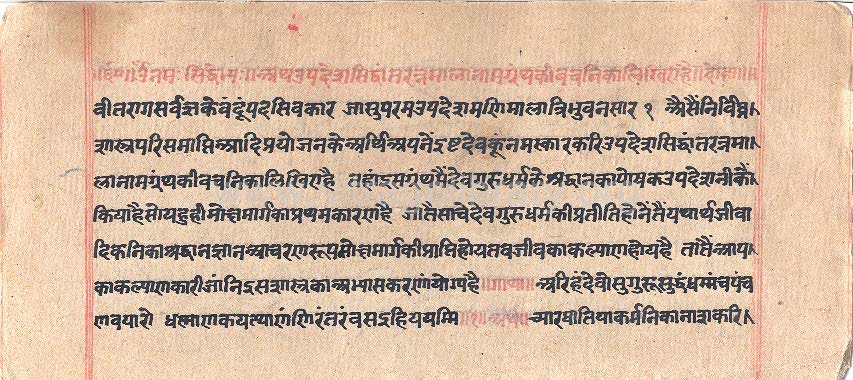 ॐनमः सिद्धेभ्यः॥अथउपदेशसिद्धांतरत्नमालानामग्रंथकीवचनिकालिखिएहै॥दोहा॥
वीतरागसर्वज्ञकेवंदूंपदसिवकार जासुपरमउपदेशमणिमालात्रिभुवनसार १ अैसैंनिर्विघ्न
शास्त्रपरिसमाप्तिआदिप्रयोजनकेअर्थिअपनेंइष्टदेवकूंनमस्कारकरिउपदेशसिद्धांतरत्नमा
लानामग्रंथकीवचनिकालिखिएहै तहांइसग्रंथमैंदेवगुरुधर्मकेश्रद्धानकापोषकउपदेशनीकैं
कियाहैसोयहहीमोक्षमार्गकाप्रथमकारणहै जातैसाचेदेवगुरुधर्मकीप्रतीतिहोनेंतैंयथार्थजीवा
दिकनिकाश्रद्धानज्ञानआचरणरूपमोक्षमार्गकीप्राप्तिहोयतबजीवकाकल्याणहोयहै तातैंआप
काकल्याणकारीजांनिइसशास्त्रकाअभ्यासकरणांयोग्यहै॥गाथा॥ अरिहंदेवोसुगुरूसुद्धंधम्मंचपंच
णवयारो धन्नाणकयत्थाणंणिरंतरंवसइहिययम्मि ॥१॥अर्थ॥ च्यारघातियाकर्मनिकानाशकरि